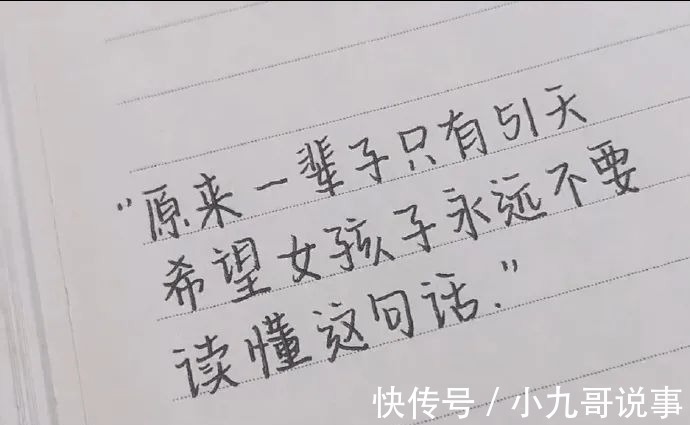 “原来一辈子只有51天
希望女孩子永远不要
读懂这句话.”
快传号 / 小九哥说事